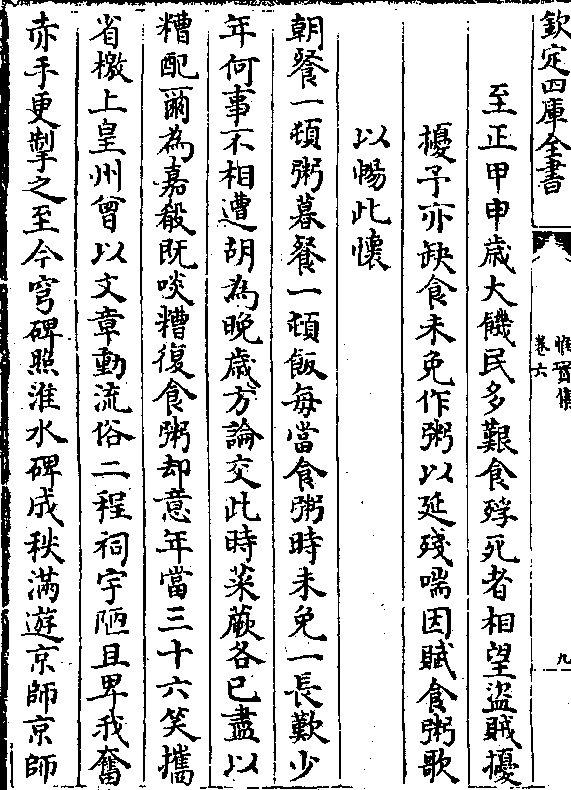 欽定四庫全書
惟實集
卷六
九
至正甲申歲大饑民多艱食殍死者相望盜賊擾
擾予亦缺食未免作粥以延殘喘因賦食粥歌
以暢此懷
朝餐一頓粥暮餐一頓飯每當食粥時未免一長歎少
年何事不相遭胡為晚歲方論交此時菜蕨各已盡以
糟配爾為嘉殽既啖糟復食粥却意年當三十六笑攜
省檄上皇州曾以文章動流俗二程祠宇陋且卑我奮
赤手更掣之至今穹碑照淮水碑成秩滿遊京師京師